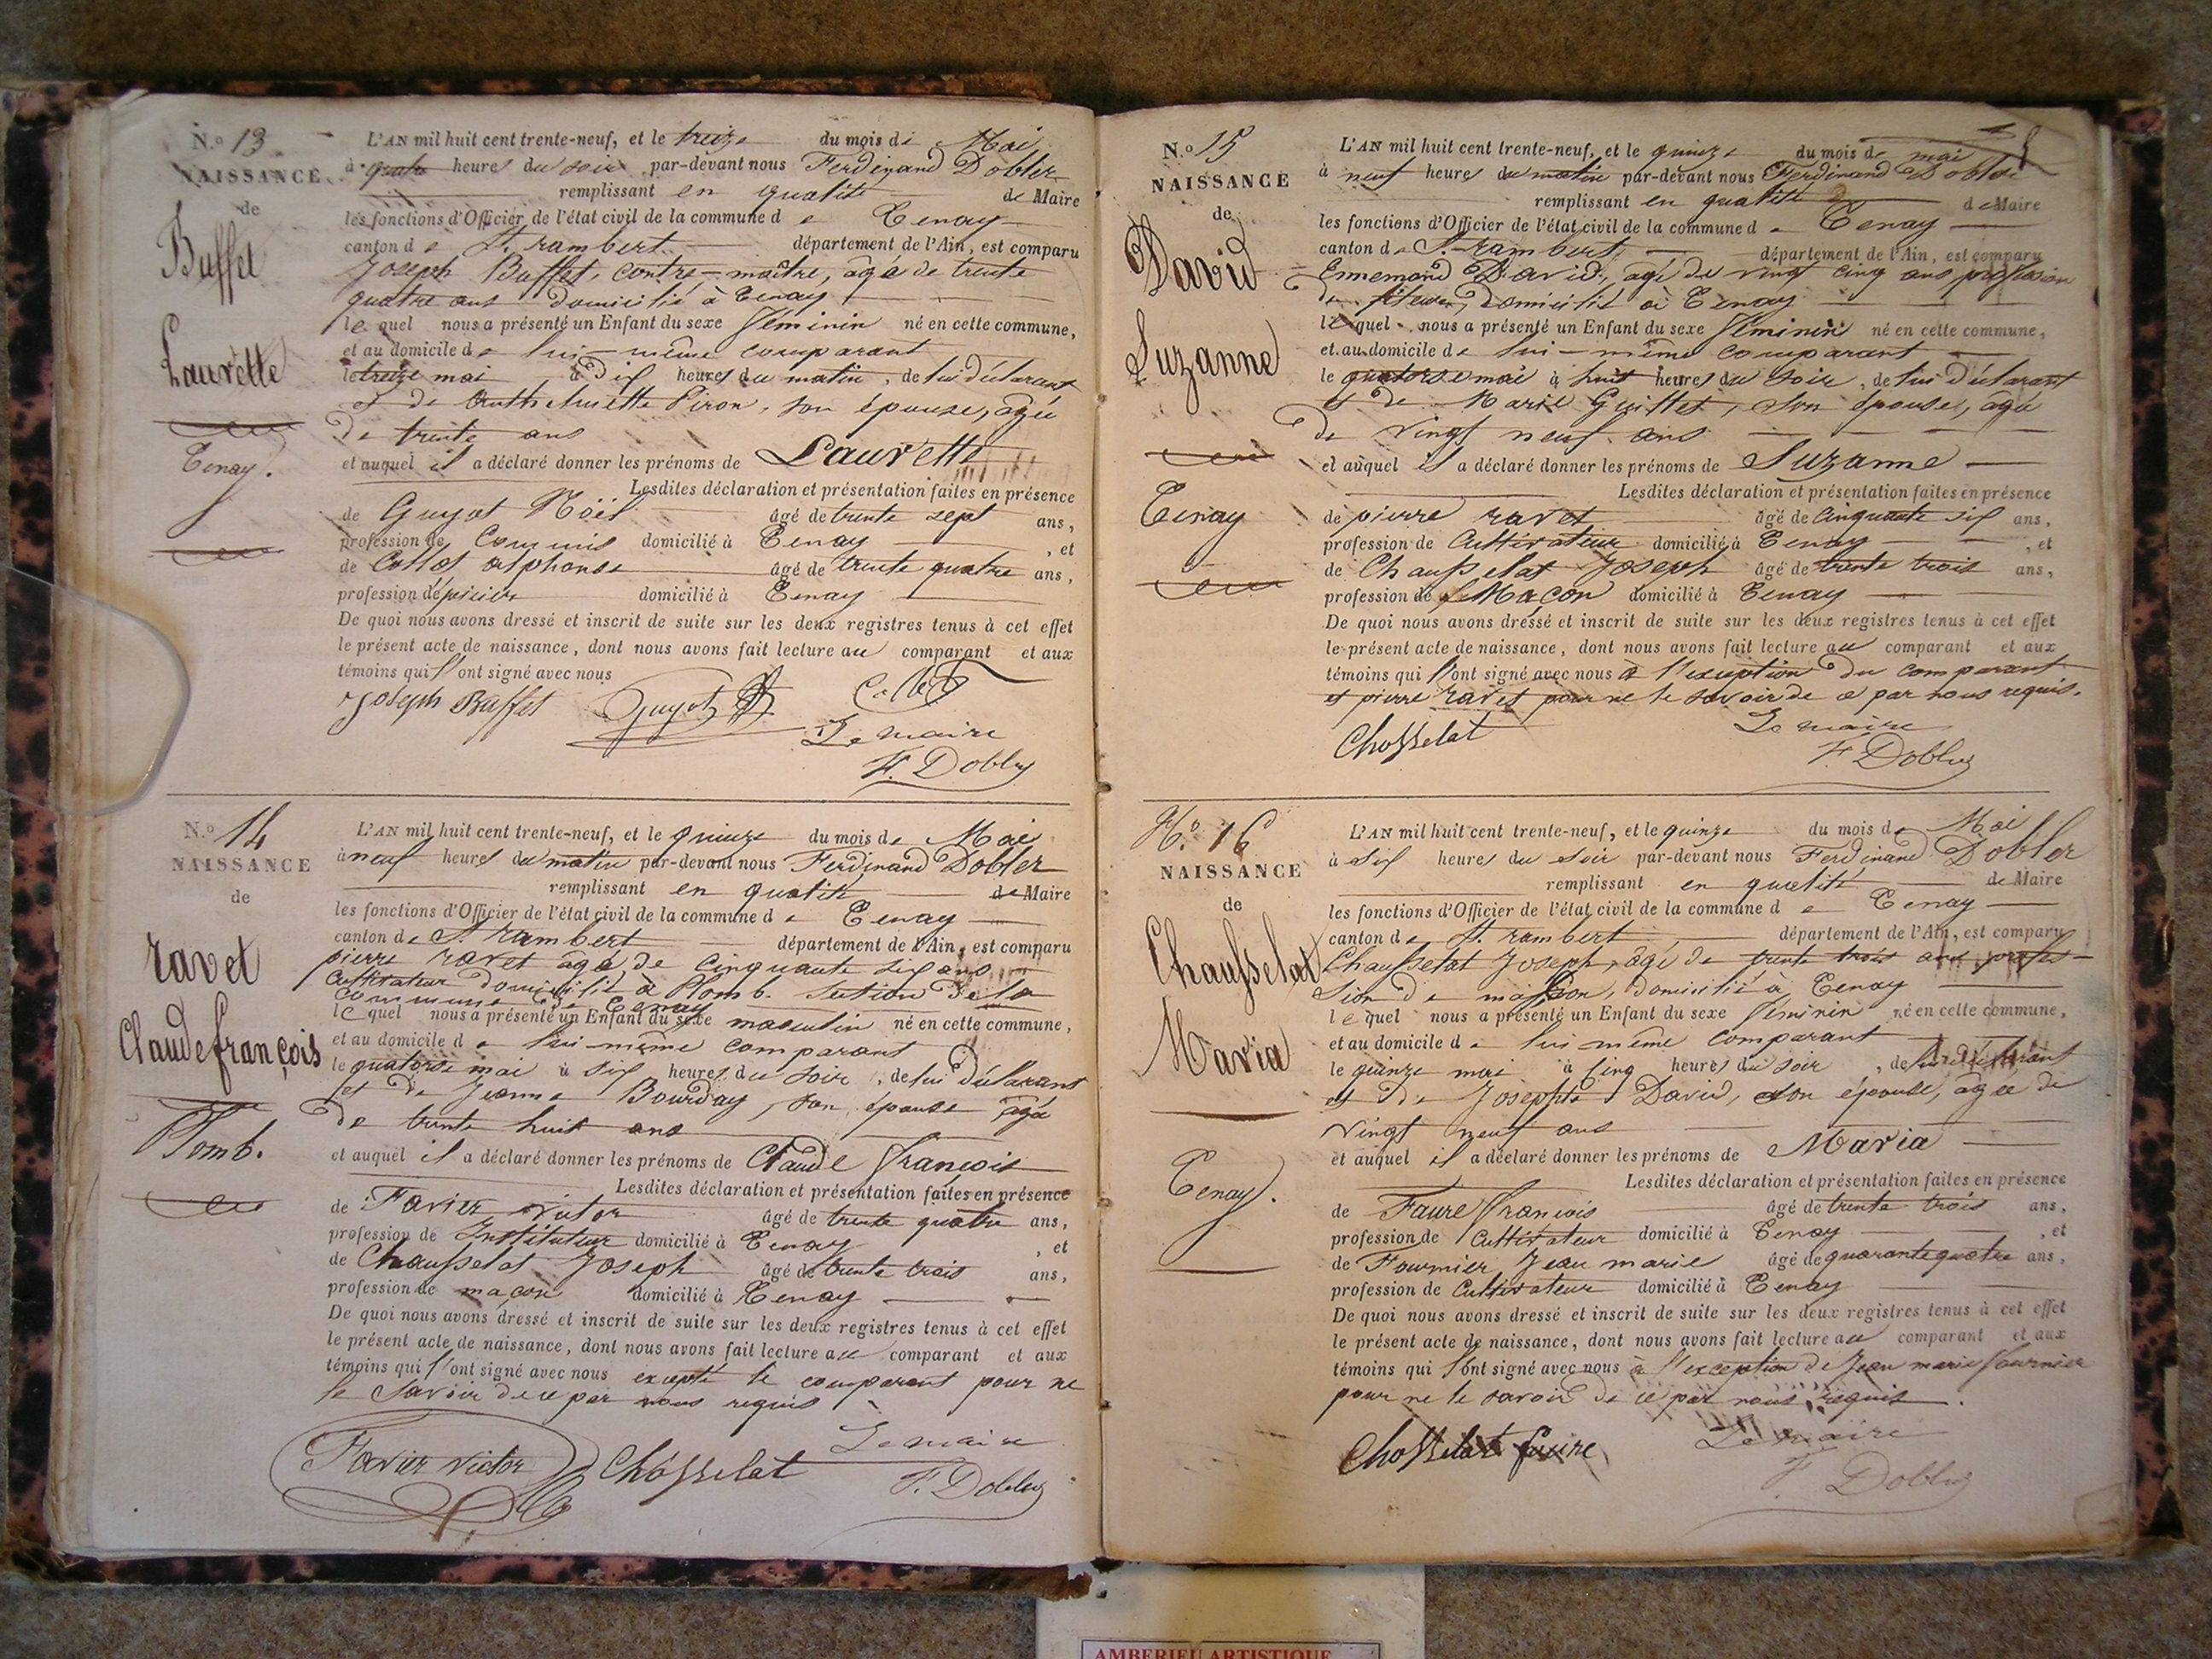 N.o 13
NAISSANCE
de
Buffet
Laurette
Tenay.
L'AN mil huit cent trente-neuf, et le treize du mois de Mai
à quatre heures du soir par-devant nous Ferdinand Dobler
remplissant en qualité de Maire
les fonctions d'Officier de l'état civil de la commune d e Tenay
canton de St. rambert département de l'Ain, est comparu
Joseph Buffet, contre-maître, âgé de trente
quatre ans domicilié à Tenay
lequel nous a présenté un Enfant du sexe féminin né en cette commune,
et au domicile de lui-même comparant
le treize mai à dix heures du matin, de lui déclarant
et de Piron, son épouse, agée
de trente ans
et auquel il a déclaré donner les prénoms de Laurette
Lesdites déclaration et présentation faites en présence
de Guyot Noël âgé de trente sept ans,
profession de Commis domicilié à Tenay, et
de Collet alphonse âgé de trente quatre ans,
profession d'épicier domicilié à Tenay
De quoi nous avons dressé et inscrit de suite sur les deux registres tenus à cet effet
le présent acte de naissance, dont nous avons fait lecture au comparant et aux
témoins qui l'ont signé avec nous
Joseph Buffet Guyot Collet
Le maire
F. Dobler
N.o 14
NAISSANCE
de
ravet
Claude françois
Plomb.
L'AN mil huit cent trente-neuf, et le quinze du mois de Mai
à neuf heures du matin par-devant nous Ferdinand Dobler
remplissant en qualité de Maire
les fonctions d'Officier de l'état civil de la commune d e Tenay
canton de St. rambert département de l'Ain, est comparu
pierre ravet âgé de cinquante six ans
cultivateur domicilié à Plomb. section de la
commune de Tenay
lequel nous a présenté un Enfant du sexe masculin né en cette commune,
et au domicile d e lui-même comparant
le quatorze mai à six heures du soir, de lui déclarant
et de Jeanne Bourday, son épouse âgée
de trente huit ans
et auquel il a déclaré donner les prénoms de Claude françois
Lesdites déclaration et présentation faites en présence
de Favier victor âgé de trente quatre ans,
profession de Instituteur domicilié à Tenay, et
de Chausselat Joseph âgé de trente trois ans,
profession de maçon domicilié à Tenay
De quoi nous avons dressé et inscrit de suite sur les deux registres tenus à cet effet
le présent acte de naissance, dont nous avons fait lecture au comparant et aux
témoins qui l'ont signé avec nous excepté le comparant pour ne
le savoir de ce par nous requis
Favier victor Chosselat Le maire
F. Dobler
N.o 15
NAISSANCE
de
David
Suzanne
Tenay
L'AN mil huit cent trente-neuf, et le quinze du mois de mai
à neuf heures du matin par-devant nous Ferdinand Dobler
remplissant en qualité de Maire
les fonctions d'Officier de l'état civil de la commune d e Tenay
canton de St. rambert département de l'Ain, est comparu
Ennemond David, agé de vingt cinq ans profession
de fileur, domicilié à Tenay
lequel nous a présenté un Enfant du sexe féminin né en cette commune,
et au domicile de lui-même comparant
le quatorze mai à huit heures du soir, de lui déclarant
et de Marie Guillet, son épouse, agée
de vingt neuf ans
et auquel il a déclaré donner les prénoms de Suzanne
Lesdites déclaration et présentation faites en présence
de pierre ravet âgé de cinquante six ans,
profession de Cultivateur domicilié à Tenay, et
de Chausselat Joseph âgé de trente trois ans,
profession de Maçon domicilié à Tenay
De quoi nous avons dressé et inscrit de suite sur les deux registres tenus à cet effet
le présent acte de naissance, dont nous avons fait lecture au comparant et aux
témoins qui l'ont signé avec nous à l'exception du comparant
et pierre ravet pour ne le savoir de ce par nous requis.
Chosselat Le maire
F. Dobler
N.o 16
NAISSANCE
de
Chausselat
Maria
Tenay.
L'AN mil huit cent trente-neuf, et le quinze du mois de Mai
à six heures du soir par-devant nous Ferdinand Dobler
remplissant en qualité de Maire
les fonctions d'Officier de l'état civil de la commune d e Tenay
canton de St. rambert département de l'Ain, est comparu
Chausselat Joseph, agé de trente trois ans profes-
sion de masson, domicilié à Tenay
lequel nous a présenté un Enfant du sexe féminin né en cette commune,
et au domicile de lui même comparant
le quinze mai à cinq heures du soir, de lui déclarant
et de Josephte David, son épouse, agée de
vingt neuf ans
et auquel il a déclaré donner les prénoms de Maria
Lesdites déclaration et présentation faites en présence
de Faure françois âgé de trente trois ans,
profession de Cultivateur domicilié à Tenay, et
de Fournier Jean marie âgé de quarante quatre ans,
profession de Cultivateur domicilié à Tenay
De quoi nous avons dressé et inscrit de suite sur les deux registres tenus à cet effet
le présent acte de naissance, dont nous avons fait lecture au comparant et aux
témoins qui l'ont signé avec nous à l'exception de Jean marie fournier
pour ne le savoir de ce par nous requis.
Chosselat faure Le maire
F. Dobler
AMBERIEU ARTISTIQUE